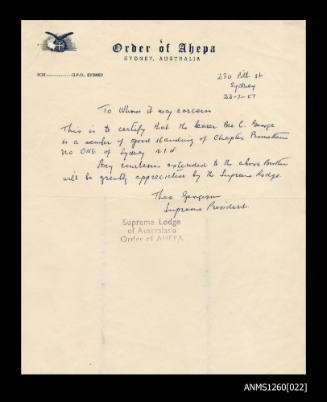 Order of Ahepa
SYDNEY, AUSTRALIA
BOX G.P.O., SYDNEY
230 Pitt St
Sydney
To Whom it may concern
This is to certify that the bearer Bro C. George
is a member of good standing of Chapter Prometheus
No ONE of Sydney
Any courtesies extended to the above Brother
will be greatly appreciated by the Supreme Lodge.
Theo
Supreme President
Supreme Lodge
of Australasia
Order of AHEPA
ANMS1260[022]